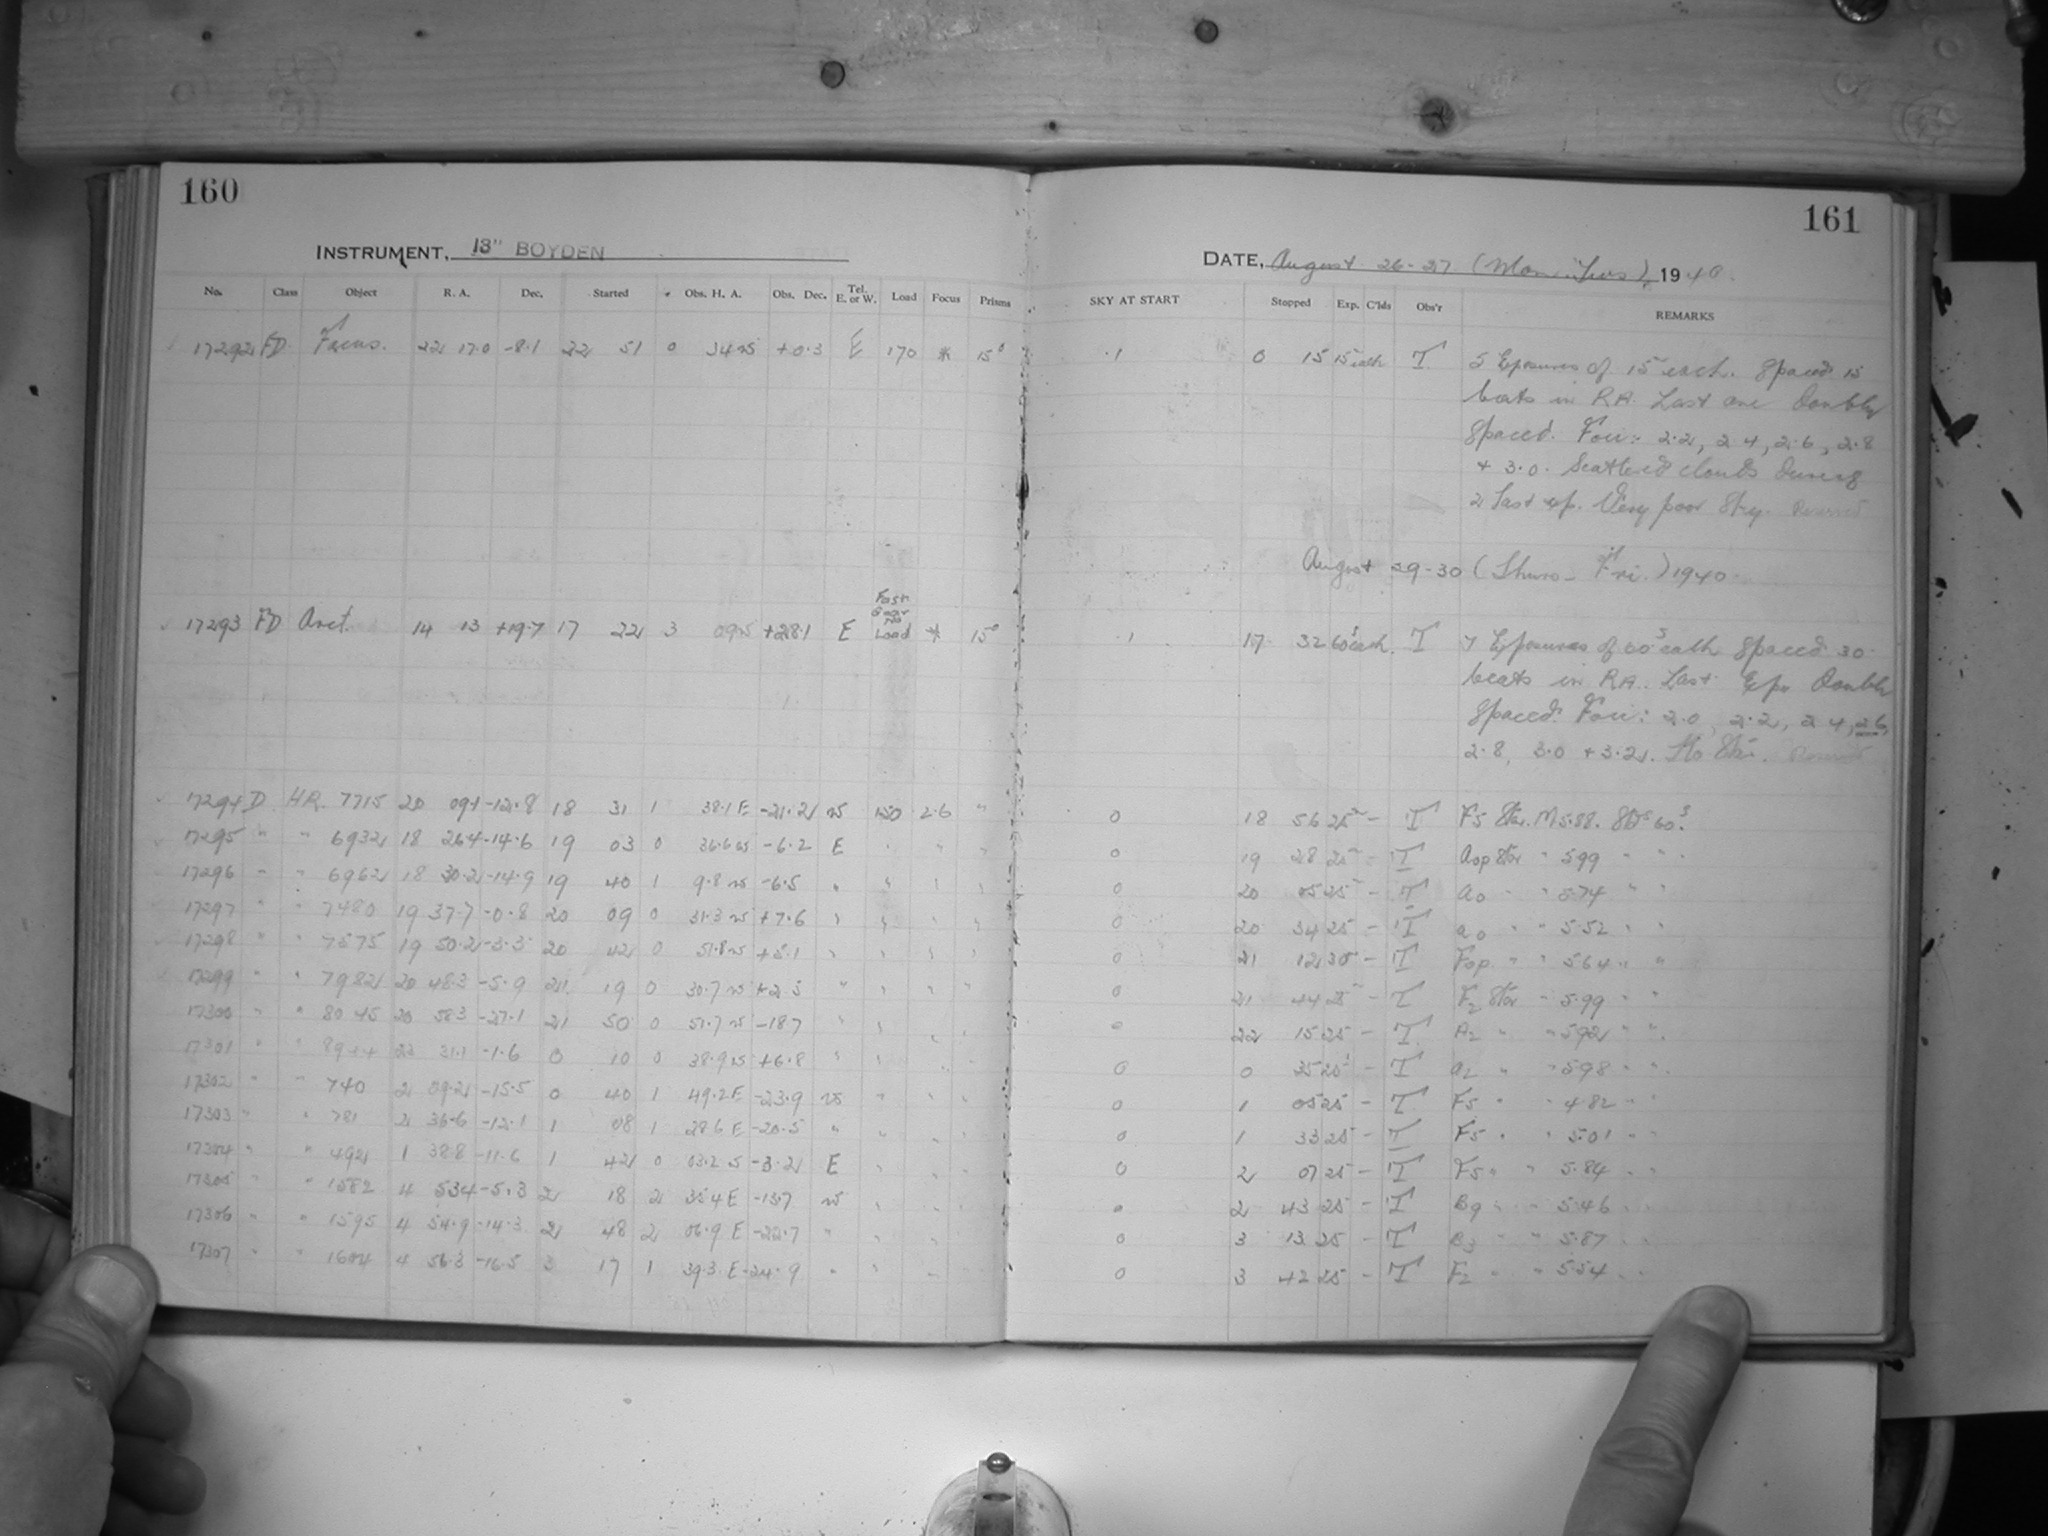 160
161
INSTRUMENT, 13" BOYDEN
DATE, August 26-27 (Mon. Tues.), 1940.
No. Class Object R. A. Dec. Started Obs. H. A. Obs. Dec. Tel. E. or W. Load Focus Prisms SKY AT START Stopped Exp. C'lds Obs'r REMARKS
17292 FD Focus. 22 17.0 -8.1 22 51 0 34 W +0.3 E 170 * 15° 1 0 15 15 each T 5 Exposures of 15 each. Spaced 15
beats in RA. Last one Doubly
Spaced. Foci: 2.2, 2.4, 2.6, 2.8
+ 3.0. Scattered clouds During
2 last exp. Very poor Sky.
August 29-30 (Thurs - Fri.) 1940.
17293 FD Arct. 14 13 +19.7 17 22 3 09 W +28.1 E Load * 15° 1 17 32 60s each. T 7 Exposures of 60s each Spaced 30
beats in RA. Last Exp. Doubly
Spaced. Foci: 2.0, 2.2, 2.4, 2.6,
2.8, 3.0 + 3.2.
17294 D HR. 7715 20 09.1 -12.8 18 31 1 38.1 E -21.2 W 150 2.6 " 0 18 56 25 - T F5 Star. M 5.88. 60s.
17295 " " 6932 18 26.4 -14.6 19 03 0 36.6 W -6.2 E " " " 0 19 28 25 - T A0p Star " 5.99 " "
17296 " " 6962 18 30.2 -14.9 19 40 1 9.8 W -6.5 " " " " 0 20 05 25 - T A0 " " 5.74 " "
17297 " " 7480 19 37.7 -0.8 20 09 0 31.3 W +7.6 " " " " 0 20 34 25 - T A0 " " 5.52 " "
17298 " " 7575 19 50.2 -3.3 20 42 0 51.8 W +5.1 " " " " 0 21 12 30 - T F0p " " 5.64 " "
17299 " " 7982 20 48.3 -5.9 21 19 0 30.7 W +2.3 " " " " 0 21 44 25 - T F2 Star " 5.99 " "
17300 " " 8045 20 58.3 -27.1 21 50 0 51.7 W -18.7 " " " " 0 22 15 25 - T A2 " " 5.92 " "
17301 " " 23 31.1 -1.6 0 10 0 38.9 W +6.8 " " " " 0 0 35 25 - T A2 " " 5.98 " "
17302 " " 740 2 09.2 -15.5 0 40 1 49.2 E -23.9 W " " " 0 1 05 25 - T F5 " " 4.82 " "
17303 " " 781 2 36.6 -12.1 1 08 1 28.6 E -20.5 " " " " 0 1 33 25 - T F5 " " 5.01 " "
17304 " " 492 1 38.8 -11.6 1 42 0 03.2 W -3.2 E " " " 0 2 07 25 - T F5 " " 5.84 " "
17305 " " 1582 4 53.4 -5.3 2 18 2 35.4 E -13.7 W " " " 0 2 43 25 - T B9 " " 5.46 " "
17306 " " 1595 4 54.9 -14.3 2 48 2 06.9 E -22.7 " " " " 0 3 13 25 - T B3 " " 5.87 " "
17307 " " 1604 4 56.3 -16.5 3 17 1 39.3 E -24.9 " " " " 0 3 42 25 - T F2 " " 5.54 " "